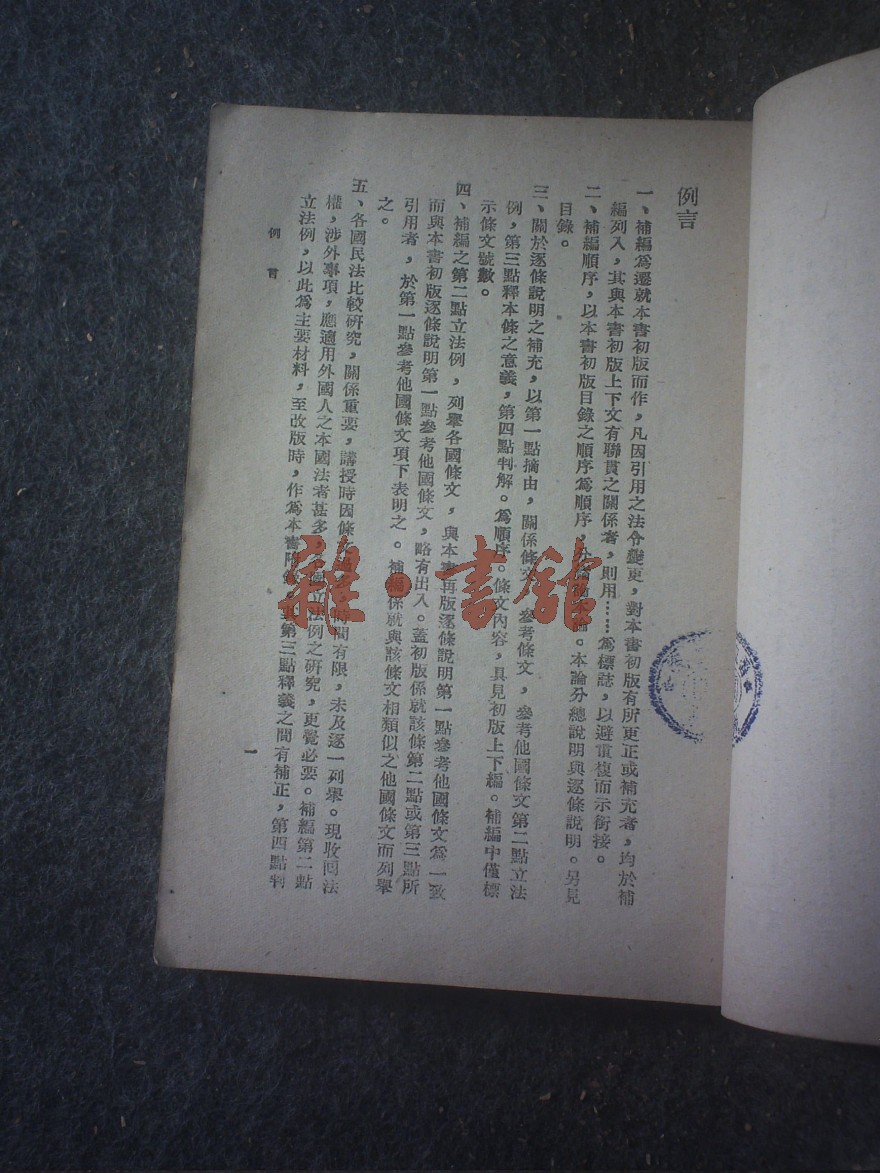 例言
一、補編爲遷就本書初版而作，凡因引用之法令變更，對本書初版有所更正或補充者，均於補
編列入，其與本書初版上下文有聯貫之關係者，則用……爲標誌，以避重複而示銜接。
二、補編順序，以本書初版目錄之順序爲順序，分緒論本論。本論分總說明與逐條說明。另見
目錄。
三、關於逐條說明之補充，以第一點摘由，關係條文，參考條文，參考他國條文第二點立法
例，第三點釋本條之意義，第四點判解。爲順序。條文內容，具見初版上下編。補編中僅標
示條文號數。
四、補編之第二點立法例，列舉各國條文，與本書再版逐條說明第一點參考他國條文爲一致
而與本書初版逐條說明第一點參考他國條文，略有出入。蓋初版係就該條第二點或第三點所
引用者，於第一點參考他國條文項下表明之。補編係就與該條文相類似之他國條文而列舉
之。
五、各國民法比較研究，關係重要，講授時因條文 時間有限，未及逐一列舉。現收回法
權，涉外事項，應適用外國人之本國法者甚多， 立法例之研究，更覺必要。補編第二點
立法例，以此爲主要材料，至改版時，作爲本書附 第三點釋義之間有補正，第四點判
例言
一
雜·書館